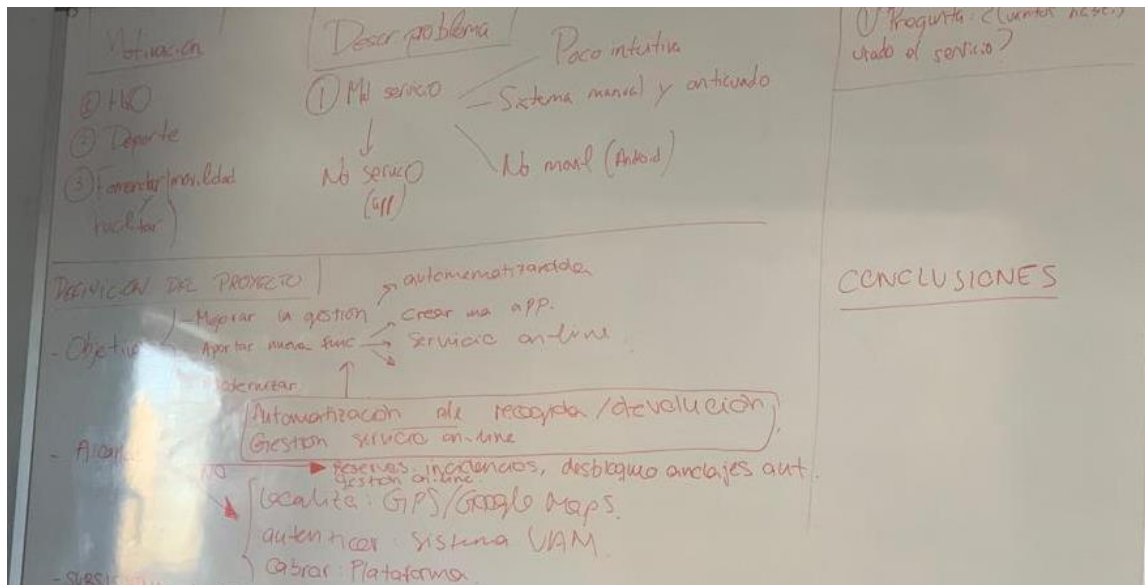 Motivación
① H2O
② Deporte
③ Fomentar movilidad
facilitar
Descr problema
① Mal servicio
Poco intuitiva
- Sistema manual y anticuado
No movil (Android)
No servicio
(app)
① Pregunta: ¿Cuantos
usado el servicio?
DEFINICION DEL PROYECTO
- Objetivo
- Mejorar la gestión
- Aportar nueva func
Modernizar
Crear una app.
Servicio on-line
Automatización de recogida / devolución,
Gestión servicio on-line
- Alcance
NO
Reservas, incidencias, desbloqueo anclajes aut.
gestión on-line
Localiza: GPS/Google Maps.
autenticar: sistema UAM
Cobrar: Plataforma
CONCLUSIONES